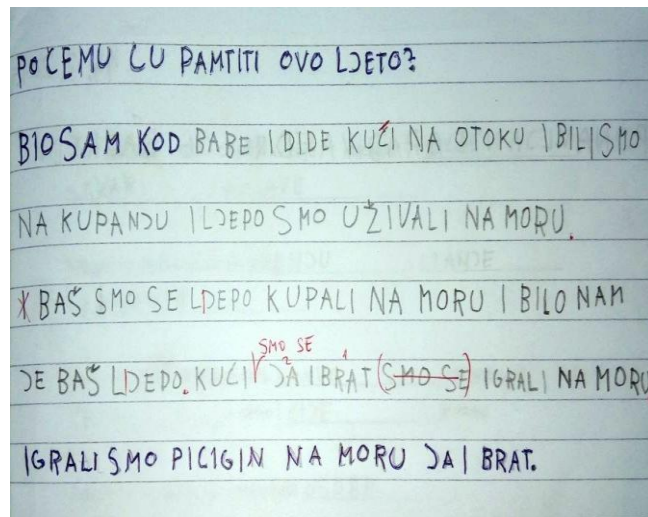 PO CEMU CU PAMTITI OVO LJETO?
BIO SAM KOD BABE I DIDE KUĆI NA OTOKU I BILI SMO
NA KUPANJU I LJEPO SMO UŽIVALI NA MORU.
* BAŠ SMO SE LJEPO KUPALI NA MORU I BILO NAM
SMO SE
JE BAŠ LJEPO. KUCI JA I BRAT (SMO SE) IGRALI NA MORU
IGRALI SMO PICIGIN NA MORU JA I BRAT.